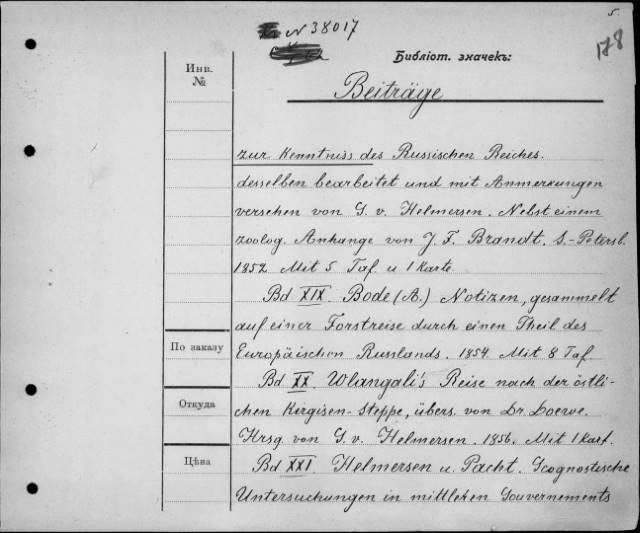 5.
№ 38017
178
Библіот. значекъ:
Инв.
№
Beiträge
zur Kenntniss des Russischen Reiches.
desselben bearbeitet und mit Anmerkungen
versehen von G. v. Helmersen. Nebst einem
zoolog. Anhange von J. F. Brandt. S.-Petersb.
1852. Mit 5 Taf. u 1 Karte.
Bd XIX. Bode (A.) Notizen, gesammelt
auf einer Forstreise durch einen Theil des
Europäischen Russlands. 1854. Mit 8 Taf.
По заказу
Bd XX. Wlangali's Reise nach der östli-
chen Kirgisen-Steppe, übers. von Dr. Loewe.
Откуда
Hrsg. von G. v. Helmersen. 1856. Mit 1 Kart.
Цѣна
Bd XXI. Helmersen u. Pacht. Geognostische
Untersuchungen in mittleren Gouvernements